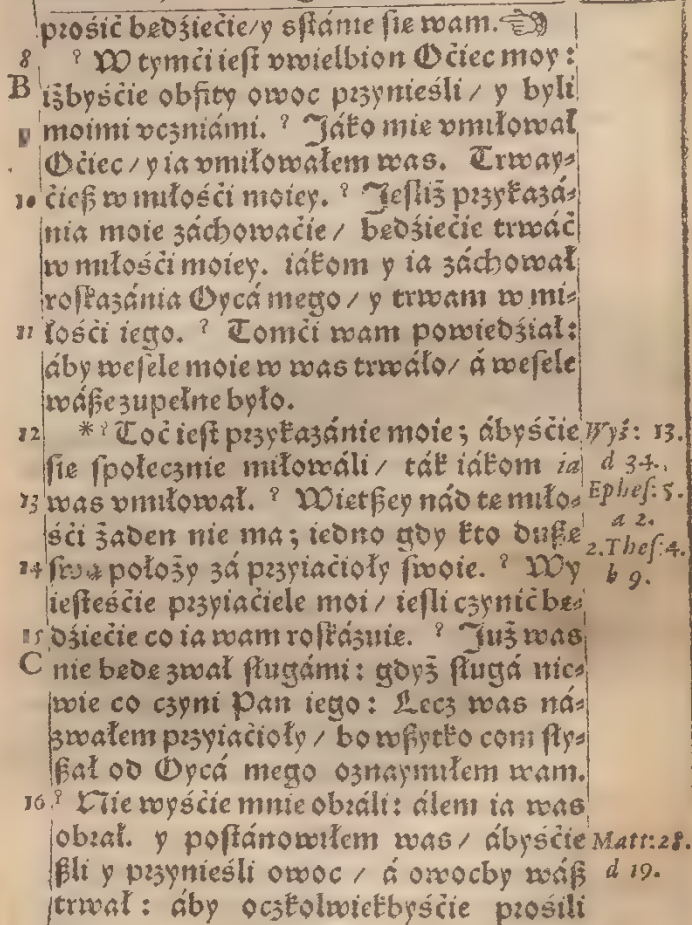 prośić będźiećie/ y sstánie sie wam.
8 W tymći iest vwielbion Oćiec moy :
B iżbyśćie obfity owoc przynieśli / y byli
9 moimi vczniámi. Jáko mie vmiłował
Oćiec / y ia vmiłowałem was. Trway⸗
10 ćieß w miłośći moiey. Jesliż przykazá⸗
nia moie záchowaćie / będźiećie trwáć
w miłośći moiey. iákom y ia záchował
roskazánia Oycá mego / y trwam w mi⸗
11 łośći iego. Tomći wam powiedźiał :
áby wesele moie w was trwáło/ á wesele
wáße zupełne było.
12 * Toć iest przykazánie moie ; ábyśćie Wyż: 13.
sie społecznie miłowáli / ták iákom ia d 34.
13 was vmiłował. Wietßey nád te miło⸗ Ephes: 5.
a 2.
śći żaden nie ma ; iedno gdy kto duße 2.Thes:4.
14 swa położy zá przyiaćioły swoie. Wy b 9.
iesteśćie przyiaćiele moi / iesli czynić be⸗
15 dźiećie co ia wam roskázuie. Już was
C nie bede zwał sługámi : gdyż sługá nie⸗
wie co czyni Pan iego : Lecz was ná⸗
zwałem przyiaćioły / bo wßytko com sły⸗
ßał od Oycá mego oznaymiłem wam.
16 Nie wyśćie mnie obráli : álem ia was
obrał. y postánowiłem was / ábyśćie Matt: 28.
ßli y przynieśli owoc / á owocby wáß d 19.
trwał : áby oczkolwiekbyśćie prośili